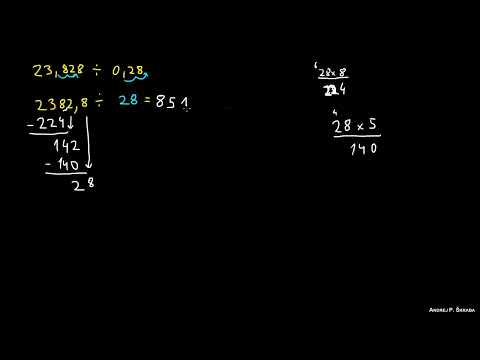 23,828 ÷ 0,28
2382,8 ÷ 28 = 851
-224
142
-140
28
6
28 x 8
224
4
28 x 5
140
ANDREJ P. ŠKRABA